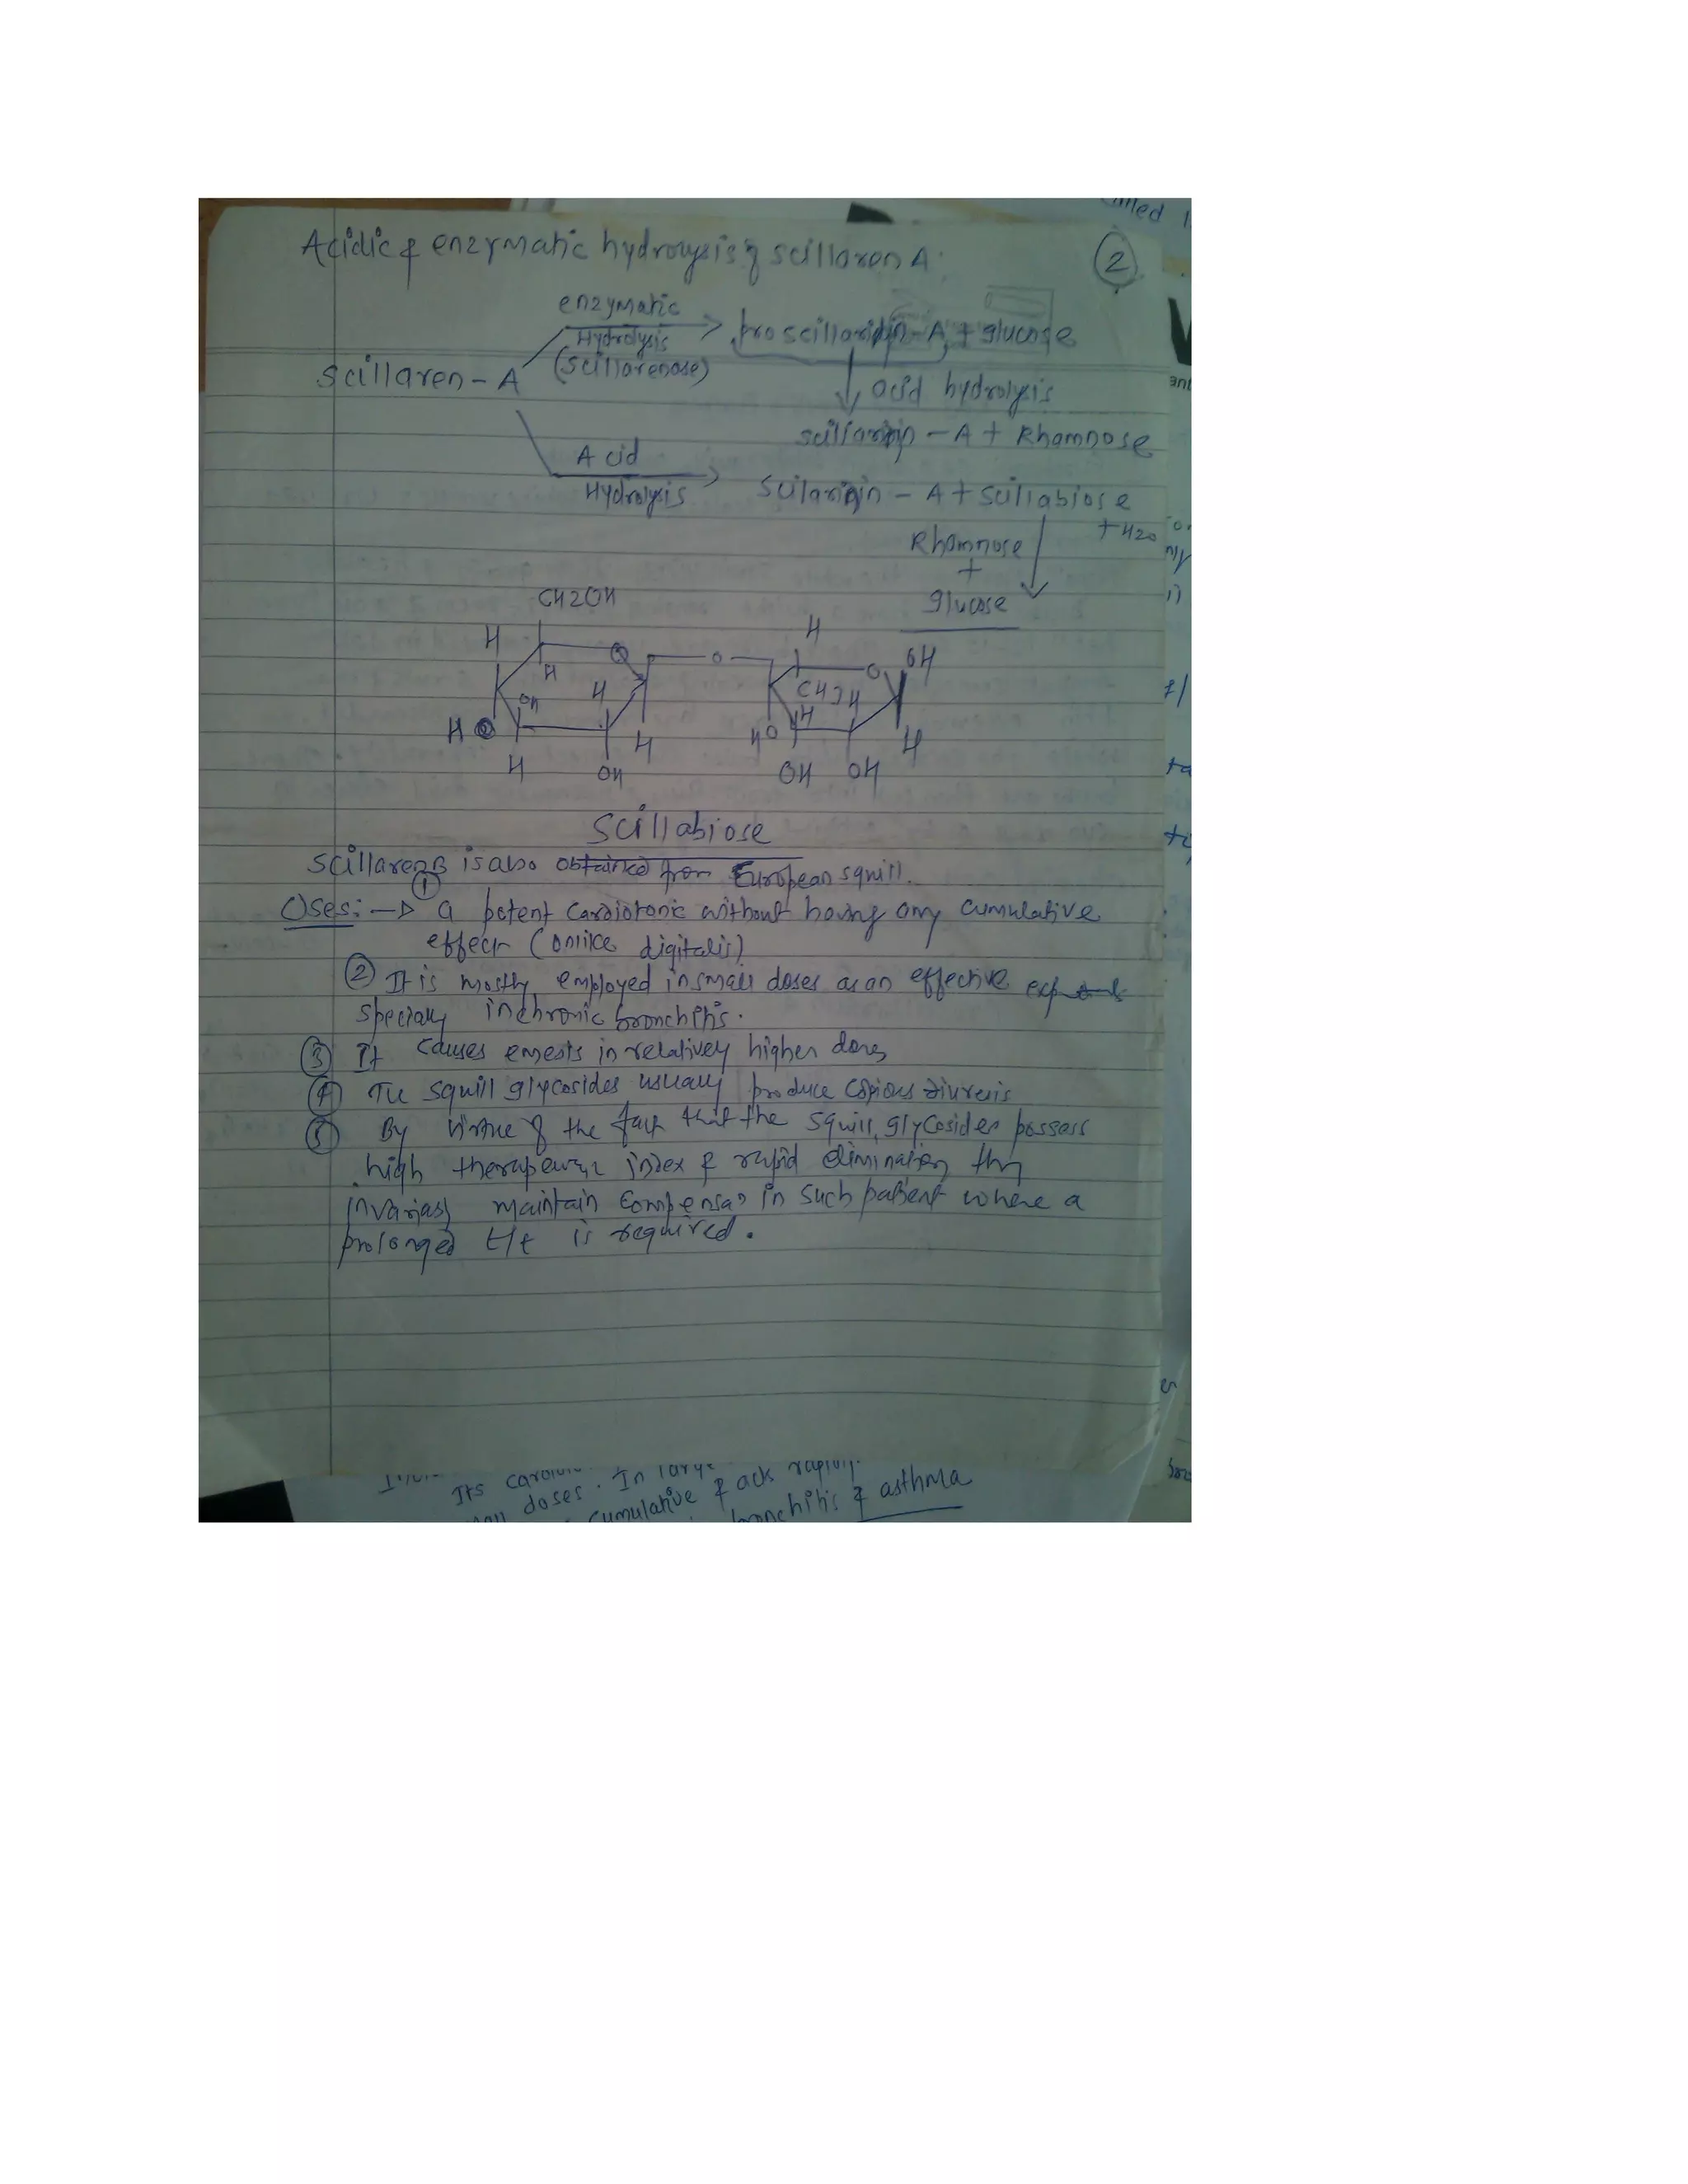 Acidic & enzymatic hydrolysis of scillaren A:
2
enzymatic
Hydrolysis
(scillarenase)
proscillaridin-A + glucose
scillaren-A
acid hydrolysis
scillaridin-A + Rhamnose
Acid
Hydrolysis
Scilaridin-A + Scillabiose
+H2O
Rhamnose
+
glucose
CH2OH
H
H
O
O
O
OH
H
OH
H
CH3
H
H
HO
H
HO
H
H
OH
OH
OH
Scillabiose
Scillaren B is also obtained from European squill.
Uses:→ ① a potent cardiotonic without having any cumulative
effect (unlike digitalis)
② It is mostly employed in small doses as an effective
specially in chronic bronchitis.
③ It causes emesis in relatively higher doses
④ The squill glycosides usually produce copious diuresis
⑤ By virtue of the fact that the squill glycosides possess
high therapeutic index & rapid elimination they
maintain in such patient where a
prolonged t/t is required.
Its
doses. In large
cumulative & acts rapidly.
bronchitis & asthma